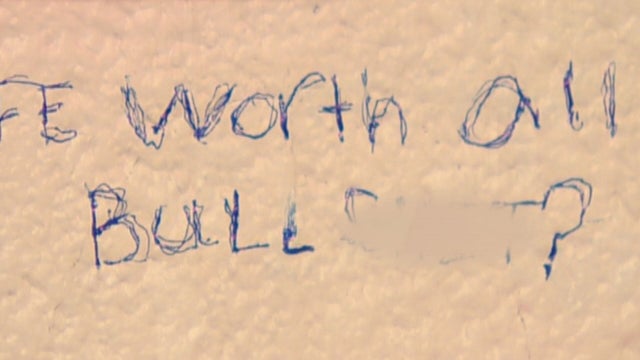 FE Worth All
BULL ?